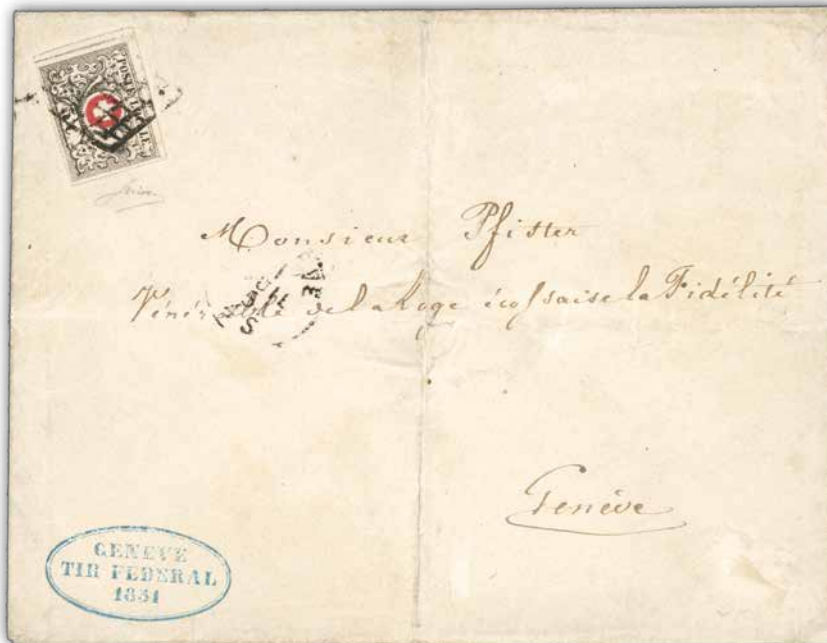 POSTE LOCALE
Monsieur Pfister
Vénérable de la Loge écossaise la Fidélité
Genève
GENEVE
TIR FEDERAL
1851